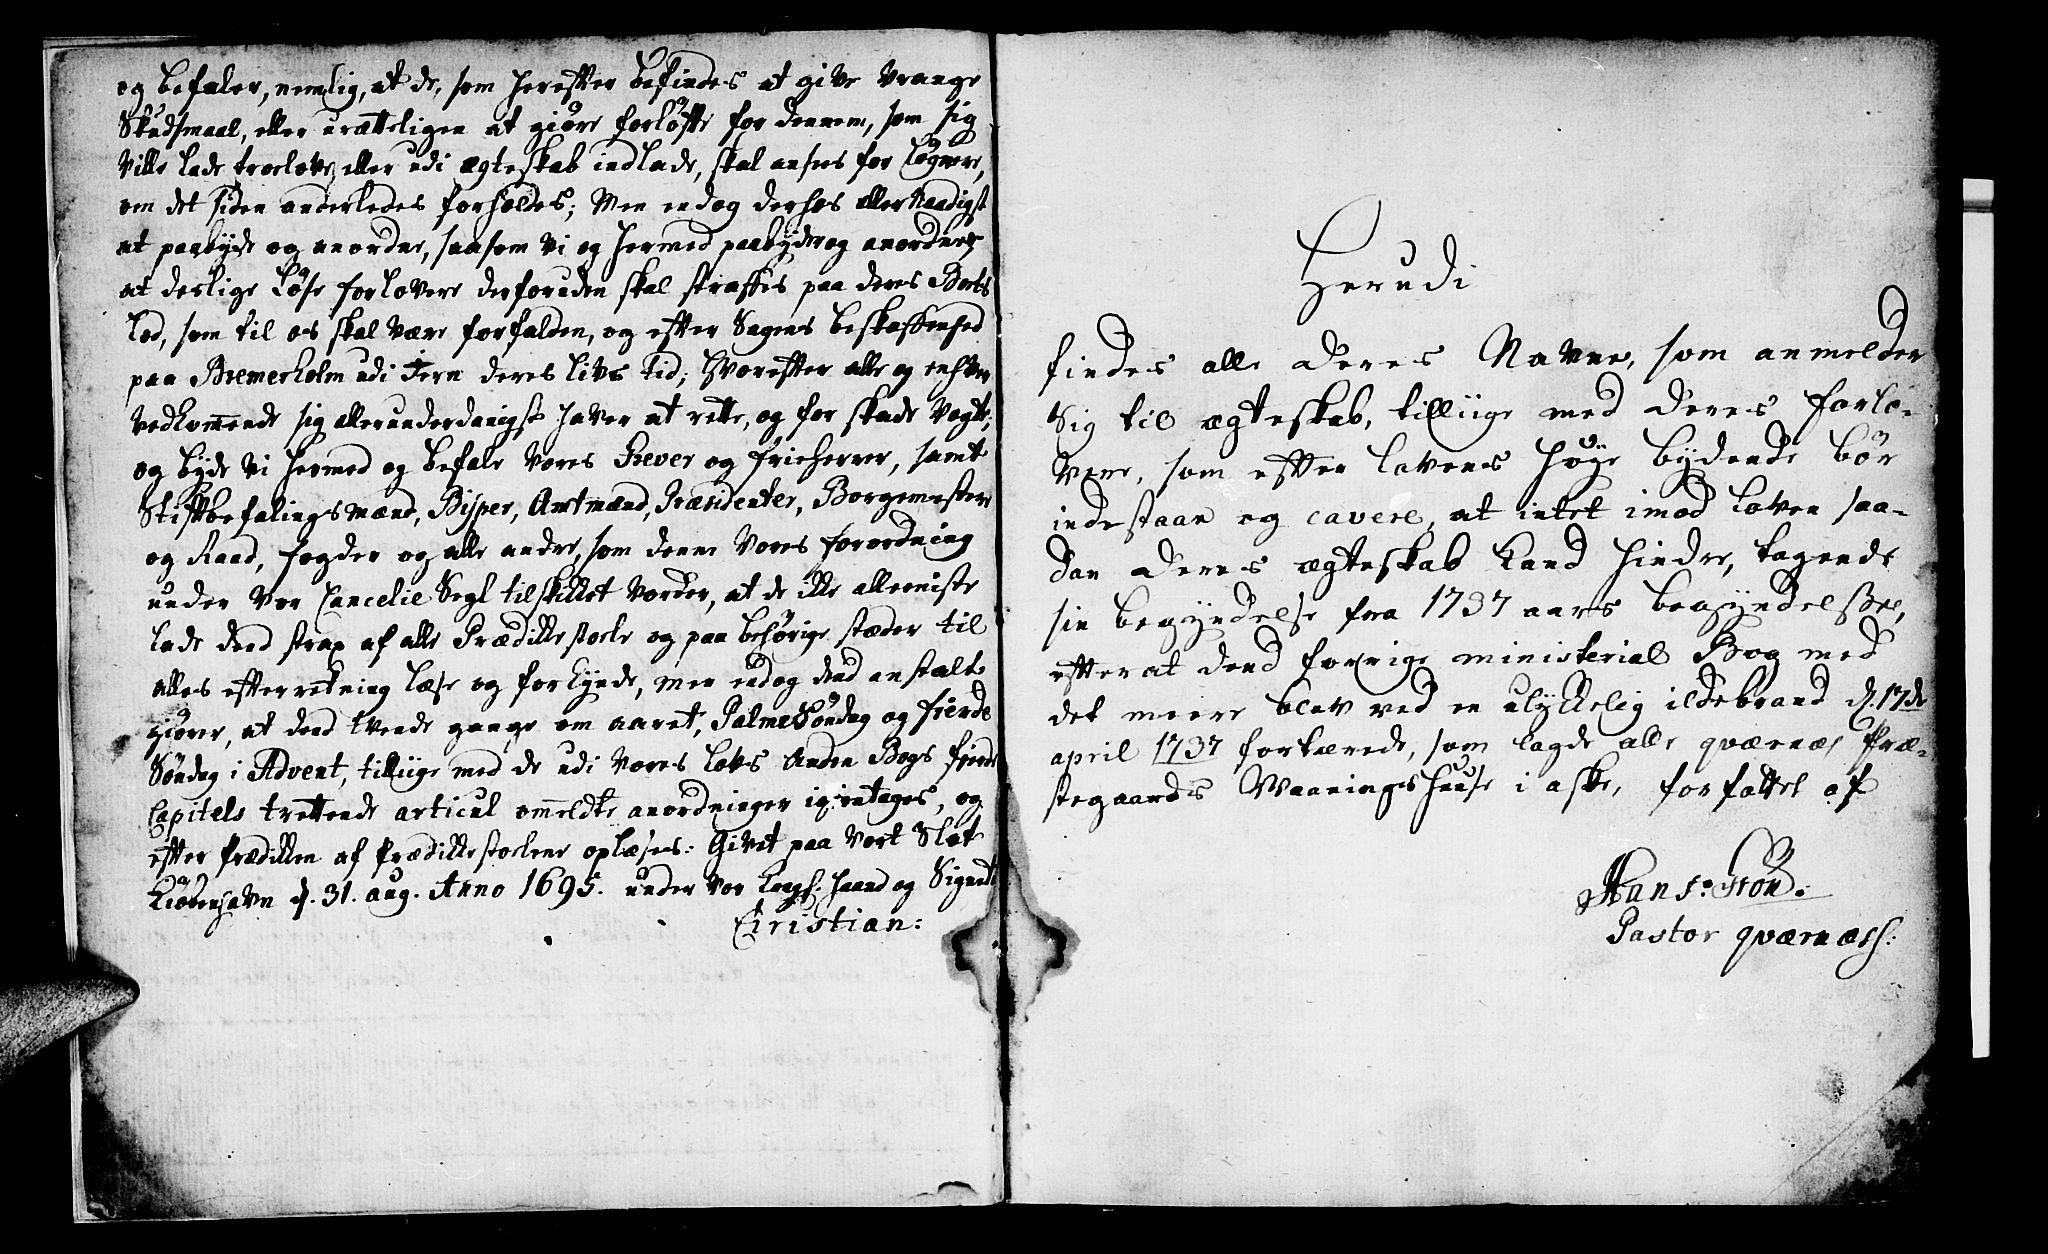 og befaler, nemlig, at de, som herefter befindes at give vrange
Skudsmaal, eller urætteligen at giöre forlöfte for dennem, som sig
ville lade troelove, eller udi ægteskab indlade, skal ansees for Lögnere,
om det siden anderledes forholdes; Men endog derhos allernaadigst
at paabyde og anordne, saasom vi og hermed paabyder og anordner
at deslige Löse forlovere desforuden skal straffes paa deres Boets
Lod, som til os skal være forfalden, og efter Sagens beskaffenhed
paa Bremerholm udi Jern deres livs tid; hvorefter alle og enhver
vedkom̄ende sig allerunderdanigst haver at rette, og for skade vogte,
og byde vi hermed og befale vores Grever og friherrer, samt
Stiftbefalingsmænd, Bisper, Amtmænd, Præsidenter, Borgemestere
og Raad, fogder og alle andre, som denne vores forordning
under vor Cancelie Segl tilskikket vorder, at de ikke alleeniste
lade dend strax af alle Prædikkestoele og paa behörige stæder til
alles efterretning læse og forkynde, men endog dend anstalt
giörer, at dend tvende gange om aaret, PalmeSöndag og fierde
Söndag i Advent, tilliige med de udi vores lovs Anden Bogs fierde
Capitels trettende articul om̄eldte anordninger igientages, og
efter Prædikken af Prædikkestoelene oplæses: Givet paa vort Slot
Kiöbenhavn d. 31. aug. Anno 1695. under vor Kongl. haand og Signet
Christian:
Herudi
findes alle deres Navne, som anmelder
Sig til ægteskab, tilliige med deres forlo-
vere, som efter lovens höye bydende bör
indestaae og cavere, at intet imod loven saa-
dan deres ægteskab kand hindre, tagende
sin begyndelse fra 1737 aars begyndelsse,
efterat dend forrige ministerial Bog med
det meere blev ved en ulykkelig ildebrand d. 17de
april 1737 fortærede, som lagde alle qværnæs Præ-
stegaards Vaaningshuuse i aske, forfattet af
Hans:
Pastor qværnæss: